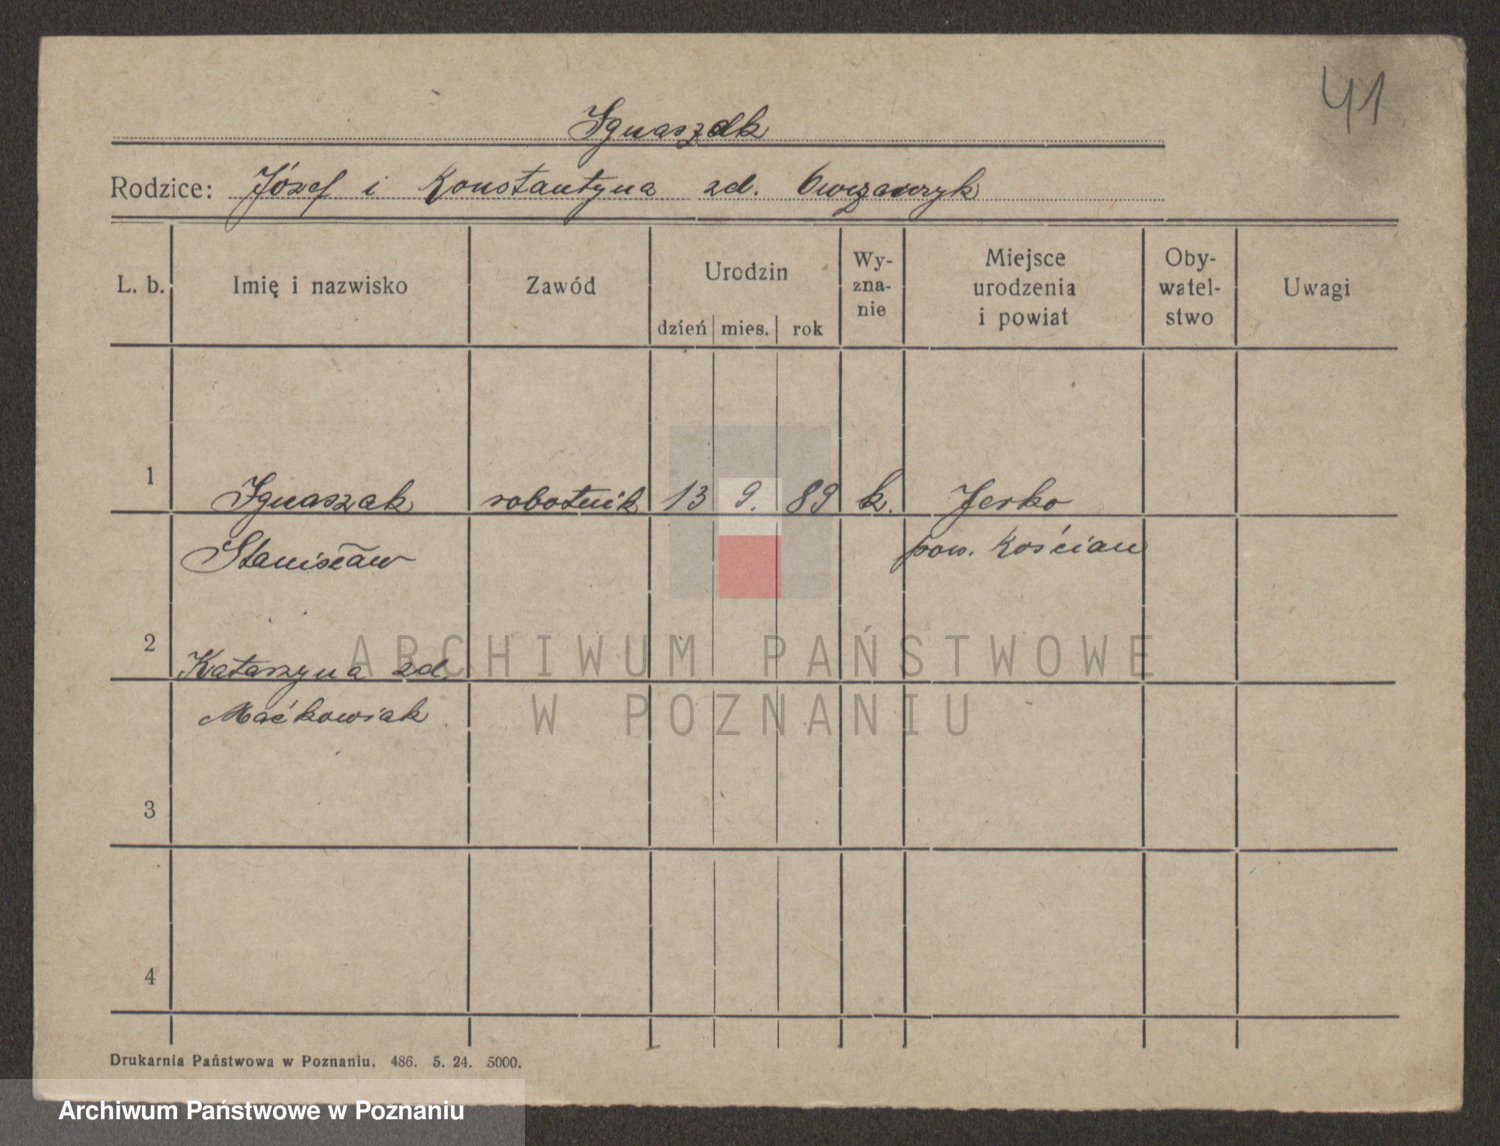 41
Ignaszak
Rodzice: Józef i Konstantyna zd. Owczarczyk
L. b. Imię i nazwisko Zawód Urodzin dzień mies. rok Wy-zna-nie Miejsce urodzenia i powiat Oby-watel-stwo Uwagi
1 Ignaszak robotnik 13 9. 89 k. Jerko
Stanisław pow. Kościan
2 Katarzyna zd.
Maćkowiak
3
4
ARCHIWUM PAŃSTWOWE
W POZNANIU
Drukarnia Państwowa w Poznaniu. 486. 5. 24. 5000.
Archiwum Państwowe w Poznaniu